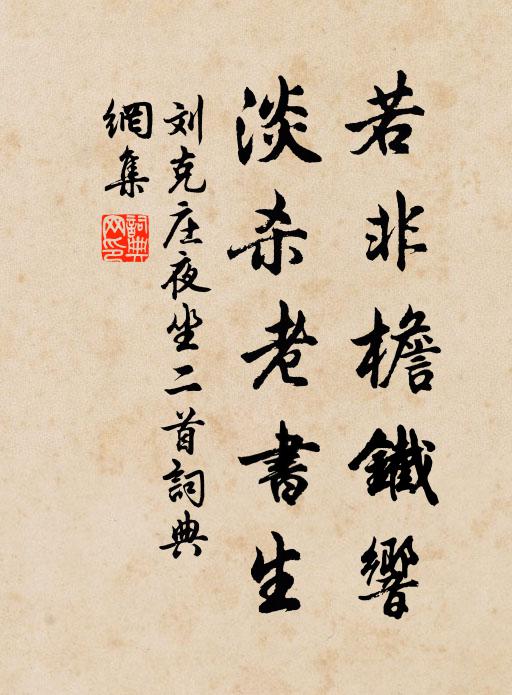 若非檐鐵響
淡杀老書生
刘克庄夜坐二首詞典
網集
詞典
网印